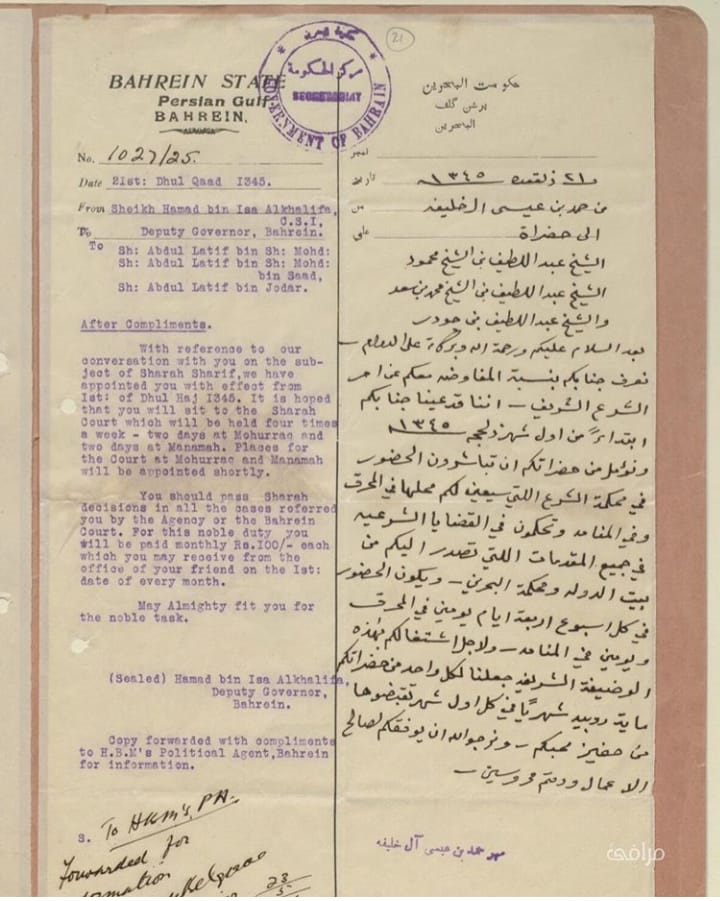 21
حكومة البحرين
مركز الحكومة
SECRETARIAT
GOVERNMENT OF BAHRAIN
BAHREIN STATE
Persian Gulf
BAHREIN.
No. 1027/25.
Date 21st: Dhul Qaad 1345.
From Sheikh Hamad bin Isa Alkhalifa,
C.S.I,
To Deputy Governor, Bahrein.
To Sh: Abdul Latif bin Sh: Mohd:
Sh: Abdul Latif bin Sh: Mohd:
bin Saad,
Sh: Abdul Latif bin Jodar.
After Compliments.
With reference to our
conversation with you on the sub-
ject of Sharah Sharif,we have
appointed you with effect from
1st: of Dhul Haj 1345. It is hoped
that you will sit to the Sharah
Court which will be held four times
a week - two days at Mohurraq and
two days at Manamah. Places for
the Court at Mohurraq and Manamah
will be appointed shortly.
You should pass Sharah
decisions in all the cases referred
you by the Agency or the Bahrein
Court. For this noble duty you
will be paid monthly Rs.100/- each
which you may receive from the
office of your friend on the 1st:
date of every month.
May Almighty fit you for
the noble task.
(Sealed) Hamad bin Isa Alkhalifa,
Deputy Governor,
Bahrein.
Copy forwarded with compliments
to H.B.M's Political Agent,Bahrein
for information.
S. To HBM's, PA.
Forwarded for
23
5
حكومت البحرين
برشن گلف
البحرين
نمبر
تاريخ ٢١ ذلقعده ١٣٤٥
من حمد بن عيسى الخليفه
الى حضراة
الشيخ عبد اللطيف بن الشيخ محمود
الشيخ عبد اللطيف بن الشيخ محمد بن سعد
والشيخ عبد اللطيف بن جودر
بعد السلام عليكم ورحمة الله وبركاته على الدوام –
نعرف جنابكم بنسبة المفاوضه معكم عن امر
الشرع الشريف – اننا قد عينا جنابكم
ابتداءً من اول شهر ذلحجه ١٣٤٥
ونؤمل من حضراتكم ان تباشرون الحضور
في محكمة الشرع اللتي سيعين لكم محلها في المحرق
وفي المنامه وتحكمون في القضايا الشرعيه
في جميع المقدمات اللتي تصدر اليكم من
بيت الدوله ومحكمة البحرين – ويكون الحضور
في كل اسبوع اربعة ايام يومين في المحرق
ويومين في المنامه – ولاجل اشتغالكم بهذه
الوضيفة الشريفه جعلنا لكل واحد من حضراتكم
ماية روبيه شهريًا في كل اول شهر تقبضوها
من محبكم – ونرجو الله ان يوفقكم لصالح
الاعمال ودمتم محروسين –
مهر حمد بن عيسى آل خليفه
مرافئ